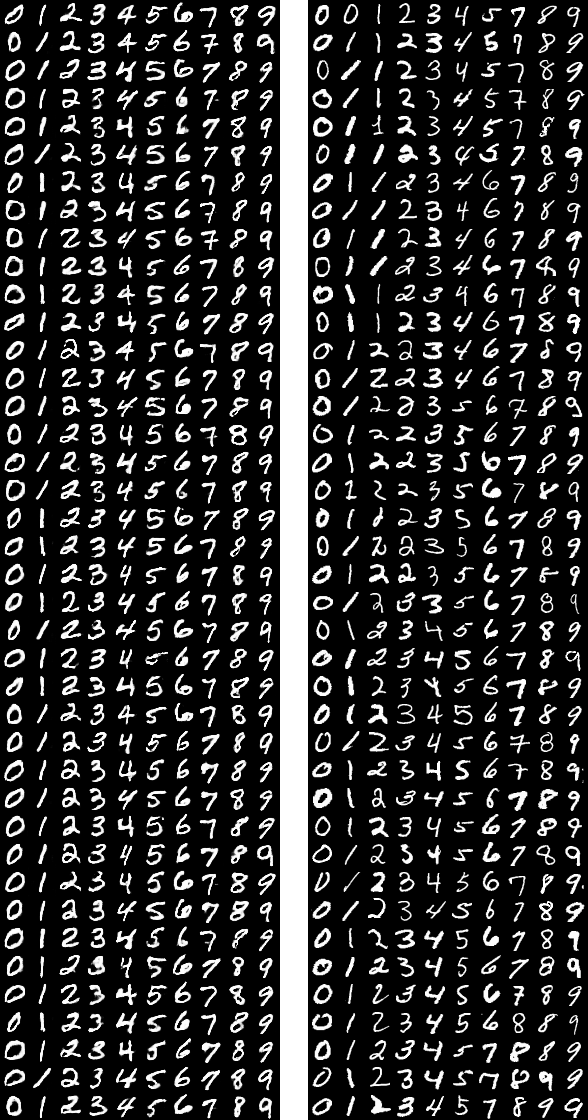 0 1 2 3 4 5 6 7 8 9
0 1 2 3 4 5 6 7 8 9
0 1 2 3 4 5 6 7 8 9
0 1 2 3 4 5 6 7 8 9
0 1 2 3 4 5 6 7 8 9
0 1 2 3 4 5 6 7 8 9
0 1 2 3 4 5 6 7 8 9
0 1 2 3 4 5 6 7 8 9
0 1 2 3 4 5 6 7 8 9
0 1 2 3 4 5 6 7 8 9
0 1 2 3 4 5 6 7 8 9
0 1 2 3 4 5 6 7 8 9
0 1 2 3 4 5 6 7 8 9
0 1 2 3 4 5 6 7 8 9
0 1 2 3 4 5 6 7 8 9
0 1 2 3 4 5 6 7 8 9
0 1 2 3 4 5 6 7 8 9
0 1 2 3 4 5 6 7 8 9
0 1 2 3 4 5 6 7 8 9
0 1 2 3 4 5 6 7 8 9
0 1 2 3 4 5 6 7 8 9
0 1 2 3 4 5 6 7 8 9
0 1 2 3 4 5 6 7 8 9
0 1 2 3 4 5 6 7 8 9
0 1 2 3 4 5 6 7 8 9
0 1 2 3 4 5 6 7 8 9
0 1 2 3 4 5 6 7 8 9
0 1 2 3 4 5 6 7 8 9
0 1 2 3 4 5 6 7 8 9
0 1 2 3 4 5 6 7 8 9
0 1 2 3 4 5 6 7 8 9
0 1 2 3 4 5 6 7 8 9
0 1 2 3 4 5 6 7 8 9
0 1 2 3 4 5 6 7 8 9
0 1 2 3 4 5 6 7 8 9
0 1 2 3 4 5 6 7 8 9
0 1 2 3 4 5 6 7 8 9
0 1 2 3 4 5 6 7 8 9
0 1 2 3 4 5 6 7 8 9
0 1 2 3 4 5 6 7 8 9
0 0 1 2 3 4 5 7 8 9
0 1 1 2 3 4 5 7 8 9
0 1 1 2 3 4 5 7 8 9
0 1 1 2 3 4 5 7 8 9
0 1 1 2 3 4 5 7 8 9
0 1 1 2 3 4 5 7 8 9
0 1 1 2 3 4 6 7 8 9
0 1 1 2 3 4 6 7 8 9
0 1 1 2 3 4 6 7 8 9
0 1 1 2 3 4 6 7 8 9
0 1 1 2 3 4 6 7 8 9
0 1 1 2 3 4 6 7 8 9
0 1 2 2 3 4 6 7 8 9
0 1 2 2 3 4 6 7 8 9
0 1 2 2 3 5 6 7 8 9
0 1 2 2 3 5 6 7 8 9
0 1 2 2 3 5 6 7 8 9
0 1 2 2 3 5 6 7 8 9
0 1 2 2 3 5 6 7 8 9
0 1 2 2 3 5 6 7 8 9
0 1 2 2 3 5 6 7 8 9
0 1 2 3 3 5 6 7 8 9
0 1 2 3 4 5 6 7 8 9
0 1 2 3 4 5 6 7 8 9
0 1 2 3 4 5 6 7 8 9
0 1 2 3 4 5 6 7 8 9
0 1 2 3 4 5 6 7 8 9
0 1 2 3 4 5 6 7 8 9
0 1 2 3 4 5 6 7 8 9
0 1 2 3 4 5 6 7 8 9
0 1 2 3 4 5 6 7 8 9
0 1 2 3 4 5 6 7 8 9
0 1 2 3 4 5 6 7 8 9
0 1 2 3 4 5 6 7 8 9
0 1 2 3 4 5 6 7 8 9
0 1 2 3 4 5 6 7 8 9
0 1 2 3 4 5 6 8 8 9
0 1 2 3 4 5 7 8 8 9
0 1 2 3 4 5 7 8 9 9
0 1 2 3 4 5 7 8 9 0